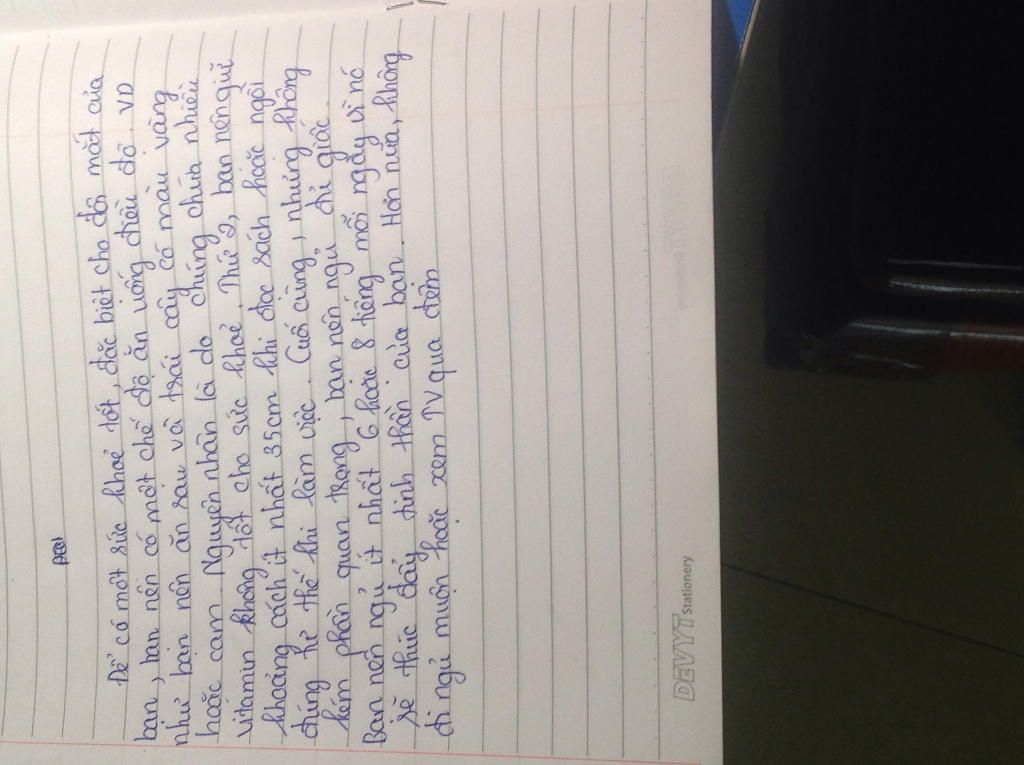 Để có một sức khoẻ tốt, đặc biệt cho đôi mắt của
bạn, bạn nên có một chế độ ăn uống điều độ. VD
như bạn nên ăn sau và trái cây có màu vàng
hoặc cam. Nguyên nhân là do chúng chứa nhiều
vitamin không tốt cho sức khoẻ. Thứ 2, bạn nên giữ
khoảng cách ít nhất 35cm khi đọc sách hoặc ngồi
đúng tư thế khi làm việc. Cuối cùng, nhưng không
kém phần quan trọng, bạn nên ngủ đủ giấc.
Bạn nên ngủ ít nhất 6 hoặc 8 tiếng mỗi ngày vì nó
sẽ thúc đẩy tinh thần của bạn. Hơn nữa, không
đi ngủ muộn hoặc xem TV qua đêm
DEVYT Stationery